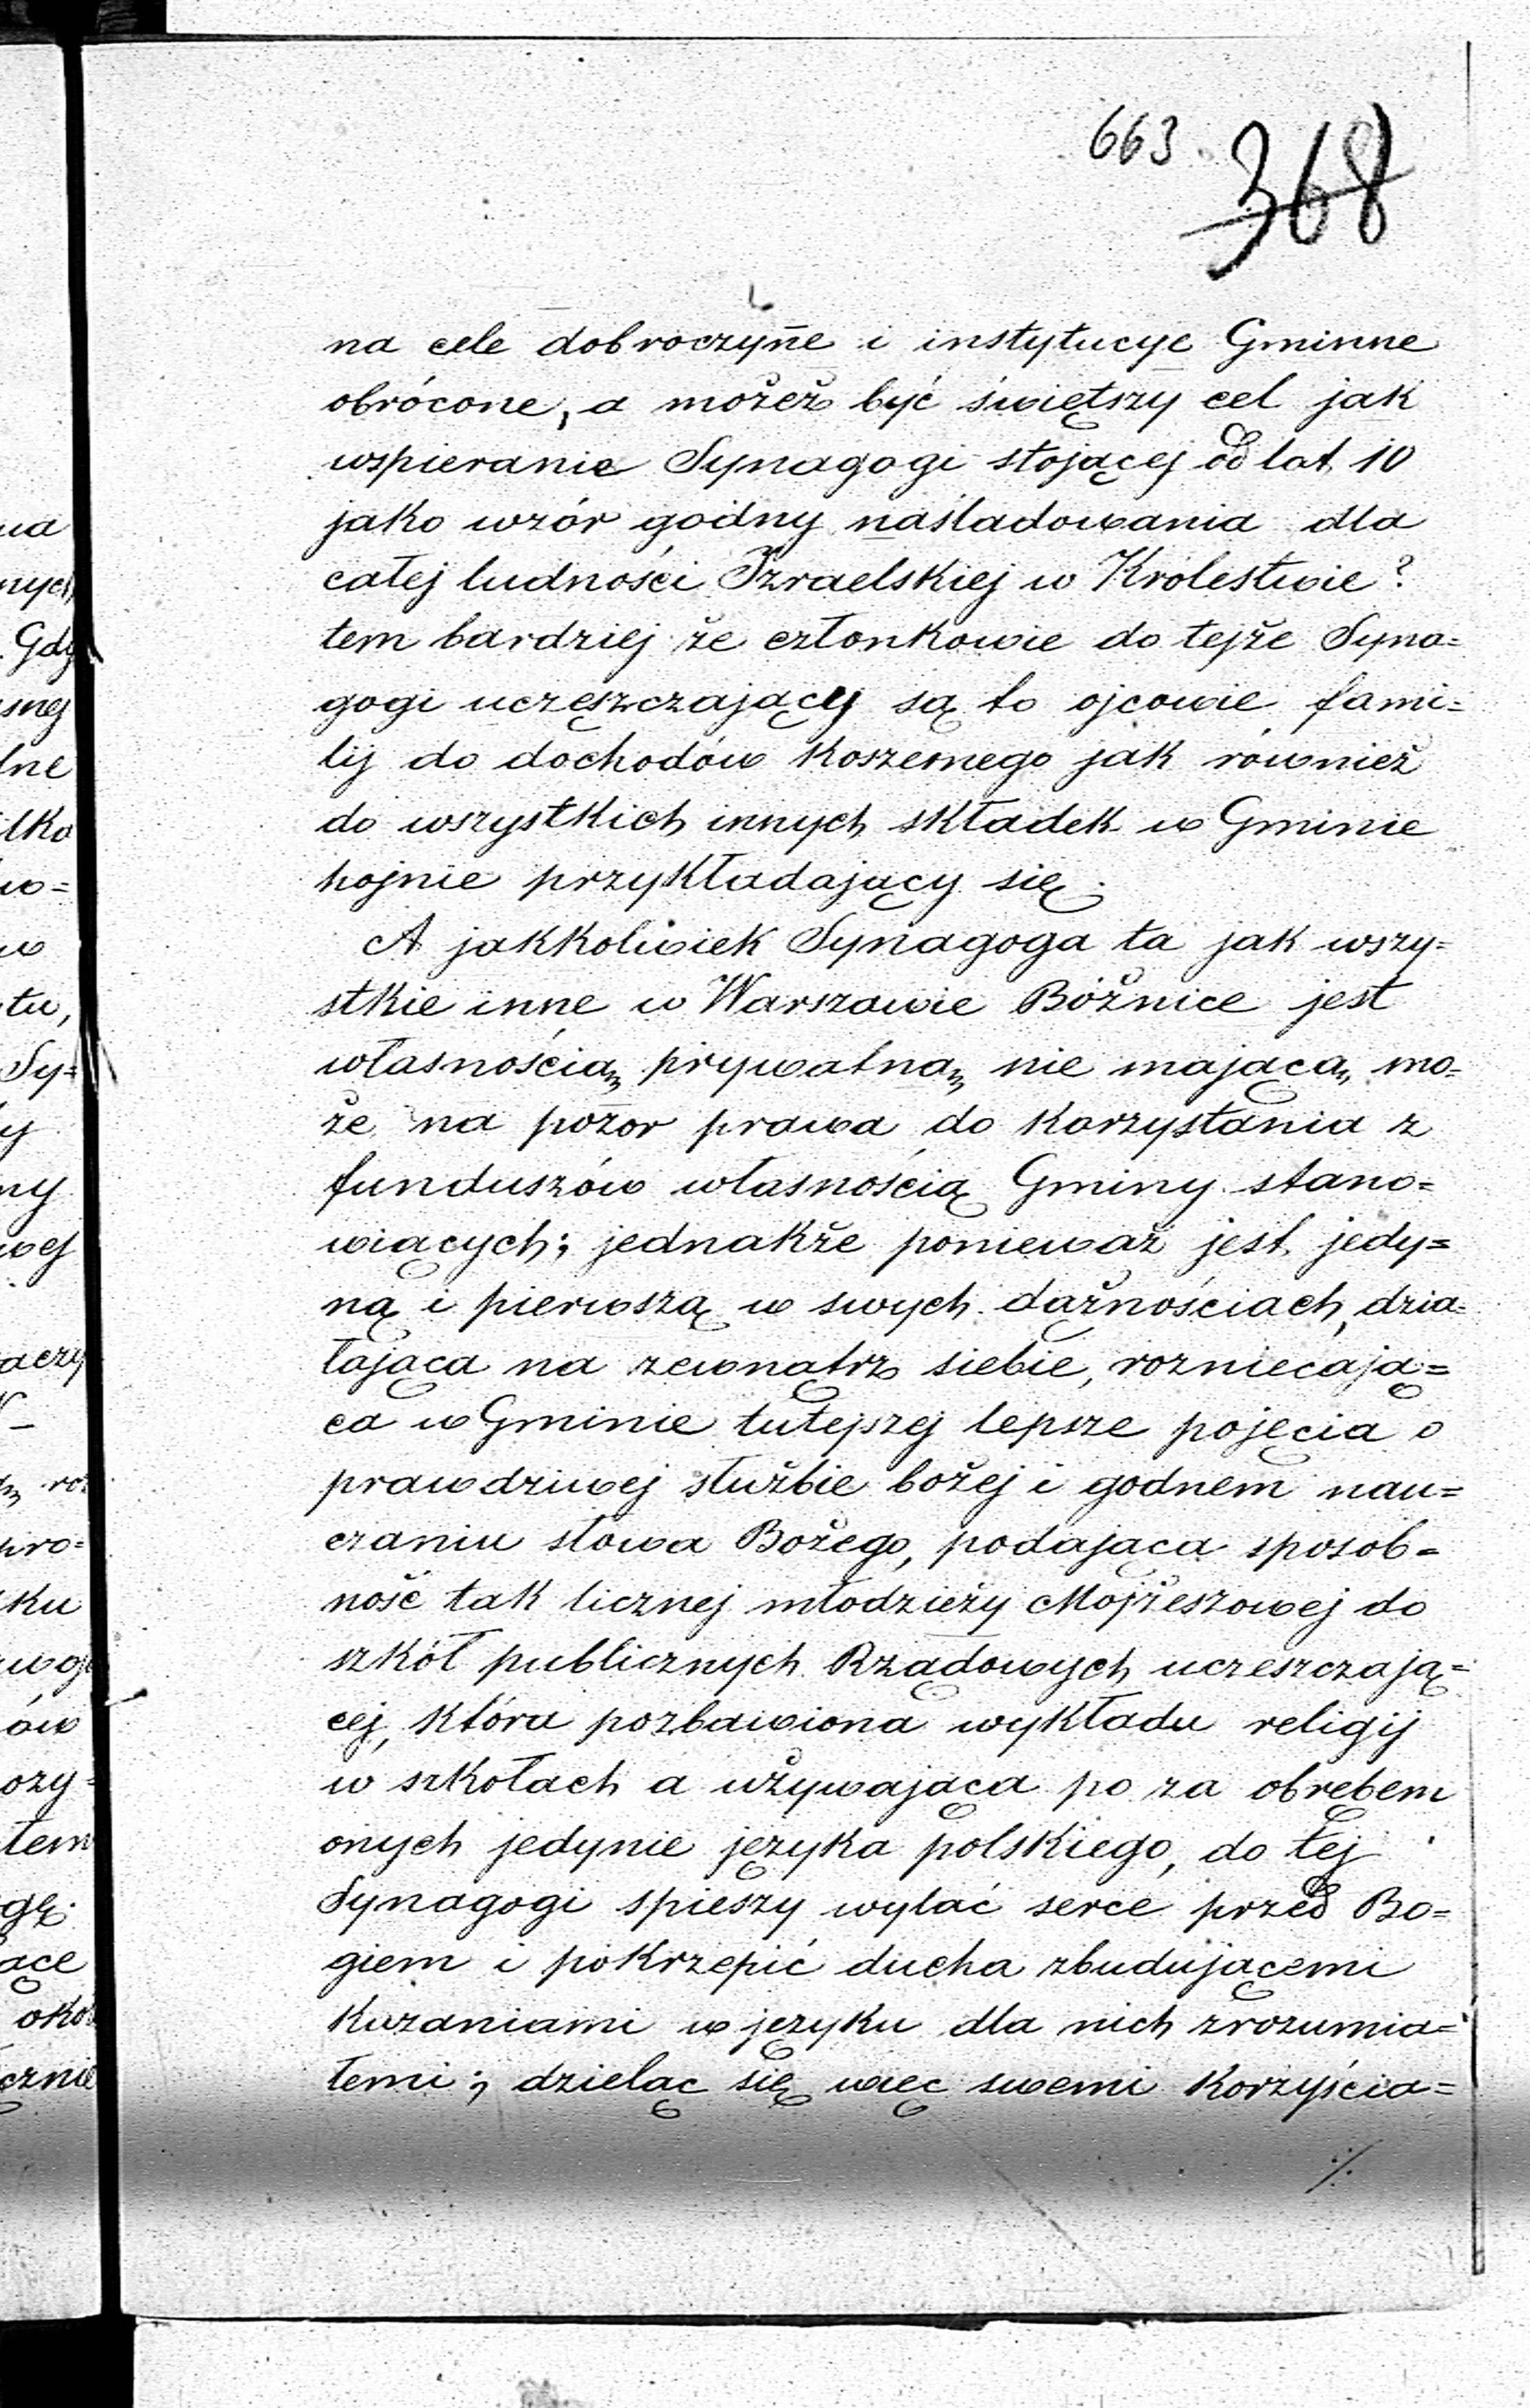 663
368
na cele dobroczyn̄e i instytucye Gminne
obrócone, a możeż być świętszy cel jak
wspieranie Synagogi stojącej od lat 10
jako wzór godny naśladowania dla
całej ludności Izraelskiej w Królestwie?
tem bardziej że członkowie do tejże Syna=
gogi uczęszczający są to ojcowie fami=
lij do dochodów koszernego jak również
do wszystkich innych składek w Gminie
hojnie przykładający się.
A jakkolwiek Synagoga ta jak wszy=
stkie inne w Warszawie Bóżnice jest
własnością prywatną nie mającą mo=
że na pozor prawa do korzystania z
funduszów własnością Gminy stano=
wiących; jednakże ponieważ jest jedy=
ną i pierwszą w swych dążnościach, dzia=
łająca na zewnątrz siebie, rozniecają=
ca w Gminie tutejszej lepsze pojęcia o
prawdziwej służbie bożej i godnem nau=
czaniu słowa Bożego, podająca sposob=
ność tak licznej młodzieży Mojżeszowej do
szkół publicznych Rządowych uczeszczają=
cej, która pozbawiona wykładu religij
w szkołach a używająca po za obrębem
onych jedynie języka polskiego, do tej
Synagogi spieszy wylać serce przed Bo=
giem i pokrzepić ducha zbudującemi
kazaniami w języku dla nich zrozumia=
łemi; dzieląc się więc swemi korzyścia=
./.